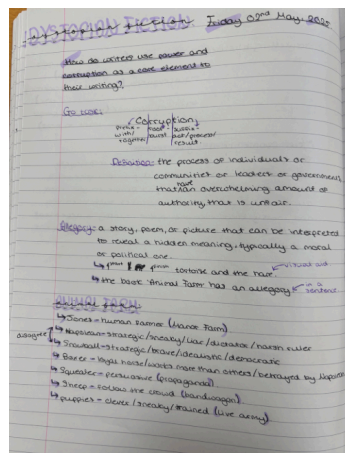 DYSTOPIAN FICTION. Friday 02nd May, 2025
How do writers use power and
corruption as a core element to
their writing?
Corruption
prefix - root - suffix -
with/ burst act/process/
together result.
Definition: the process of individuals or
communities or leaders or government
that have an overwhelming amount of
authority, that is unfair.
Allegory: a story, poem, or picture that can be interpreted
to reveal a hidden meaning, typically a moral
or political one.
↳ tortoise and the hare. visual aid
↳ the book 'Animal Farm' has an allegory in a
sentence
ANIMAL FARM
↳ Jones - human farmer (Manor Farm)
↳ Napolean - strategic/sneaky/liar/dictator/harsh ruler
↳ Snowball - strategic/brave/idealistic/democratic
↳ Boxer - loyal horse/works more than others/betrayed by Napolean
↳ Squealer - persuasive (propaganda)
↳ Sheep - follow the crowd (bandwagon)
↳ puppies - clever/sneaky/trained (like army)